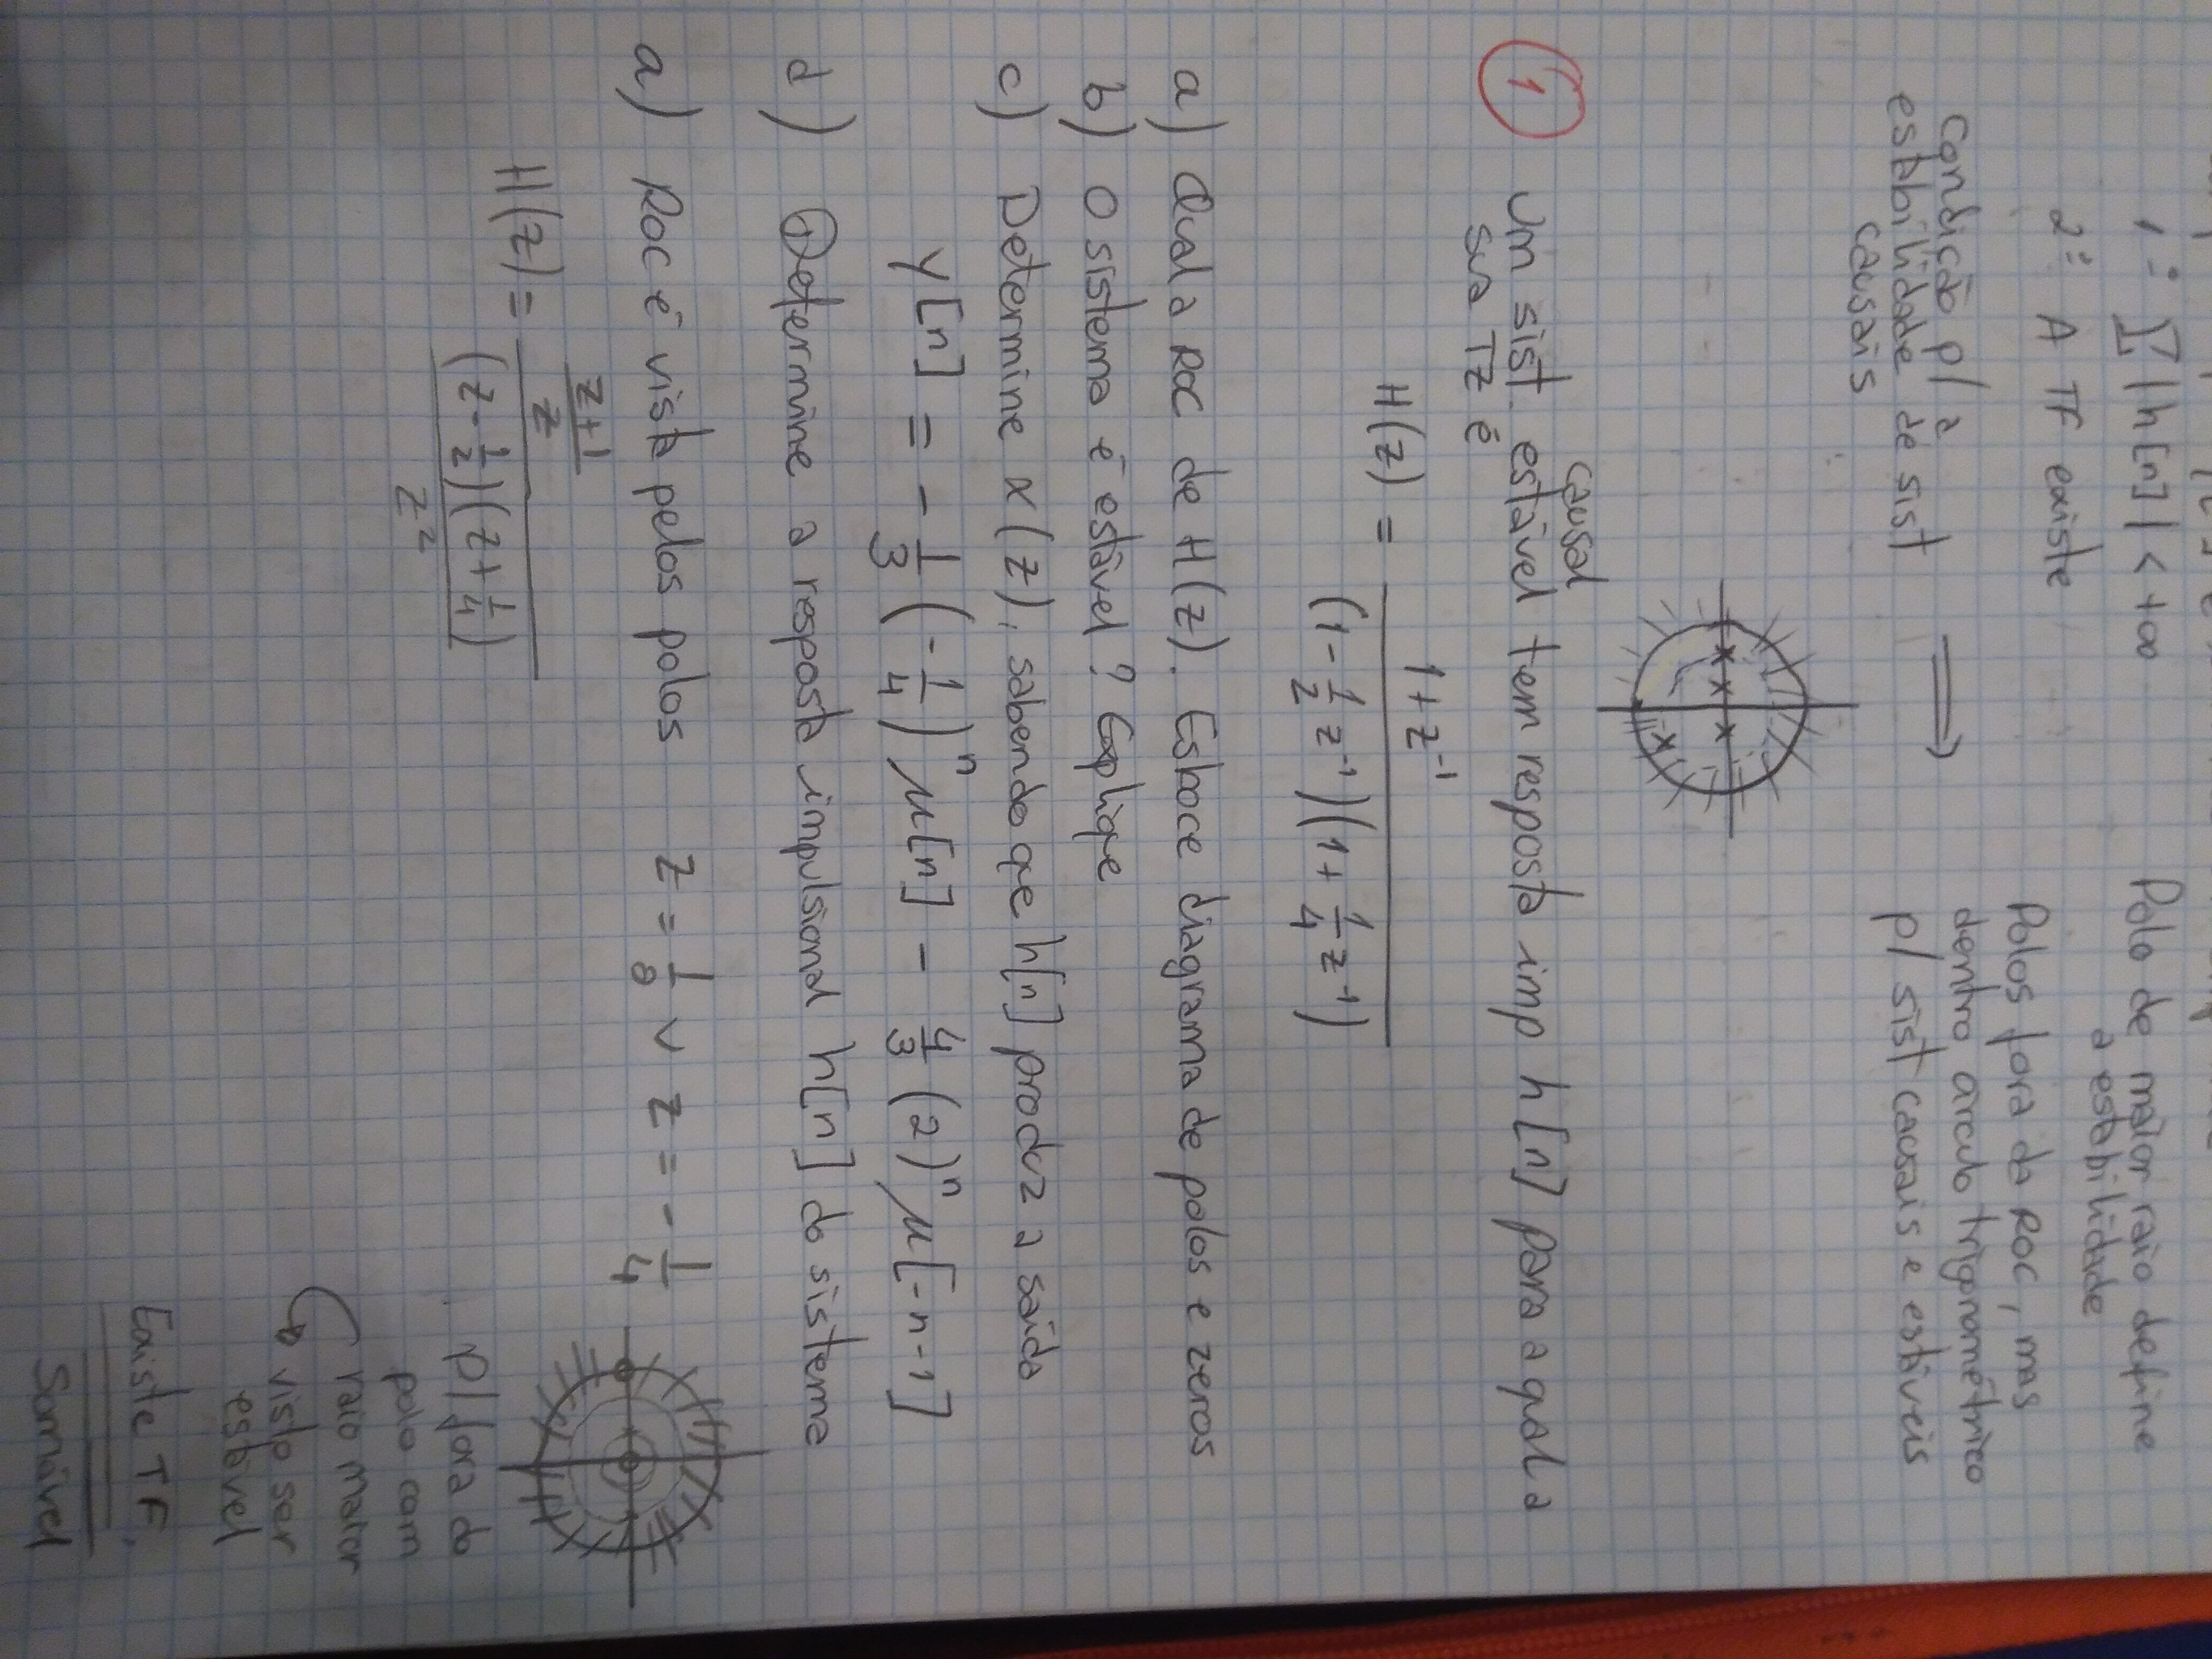 1º Σ |h[n]| < +∞
2º A TF existe
Condição p/ a
estabilidade de sist
causais
⟹
Polo de maior raio define
a estabilidade
Polos fora da ROC, mas
dentro círculo trigonométrico
p/ sist causais e estáveis
1
causal
Um sist. estável tem resposta imp h[n] para a qual a
sua TZ é
H(z) = (1+z⁻¹) / ((1-1/2 z⁻¹)(1+1/4 z⁻¹))
a) Qual a ROC de H(z). Esboce diagrama de polos e zeros
b) O sistema é estável? Explique
c) Determine x(z), sabendo que h[n] produz a saída
y[n] = -1/3 (-1/4)ⁿ μ[n] - 4/3 (2)ⁿ μ[-n-1]
d) Determine a resposta impulsional h[n] do sistema
a) ROC é vista pelos polos z = 1/2 ∨ z = -1/4
H(z) = ((z+1)/z) / (((z-1/2)(z+1/4))/z²)
p/ fora do
polo com
raio maior
visto ser
estável
Existe TF,
Somável